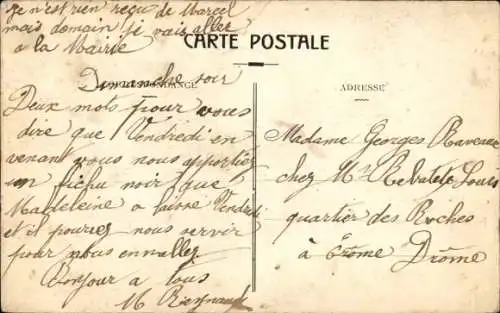 je n'est rien reçu de Marcel
mais domain je vais aller
a la Mairie
CARTE POSTALE
Dimanche soir
ADRESSE
Deux mots pour vous
dire que Vendredi en
venant vous nous apportiez
un fichu noir que
Madeleine a laissé Vendredi
et il pourrez nous servir
pour nous en aller
Bonjour a tous
M
Madame Georges
chez Mr Louis
quartier des Roches
à Drôme